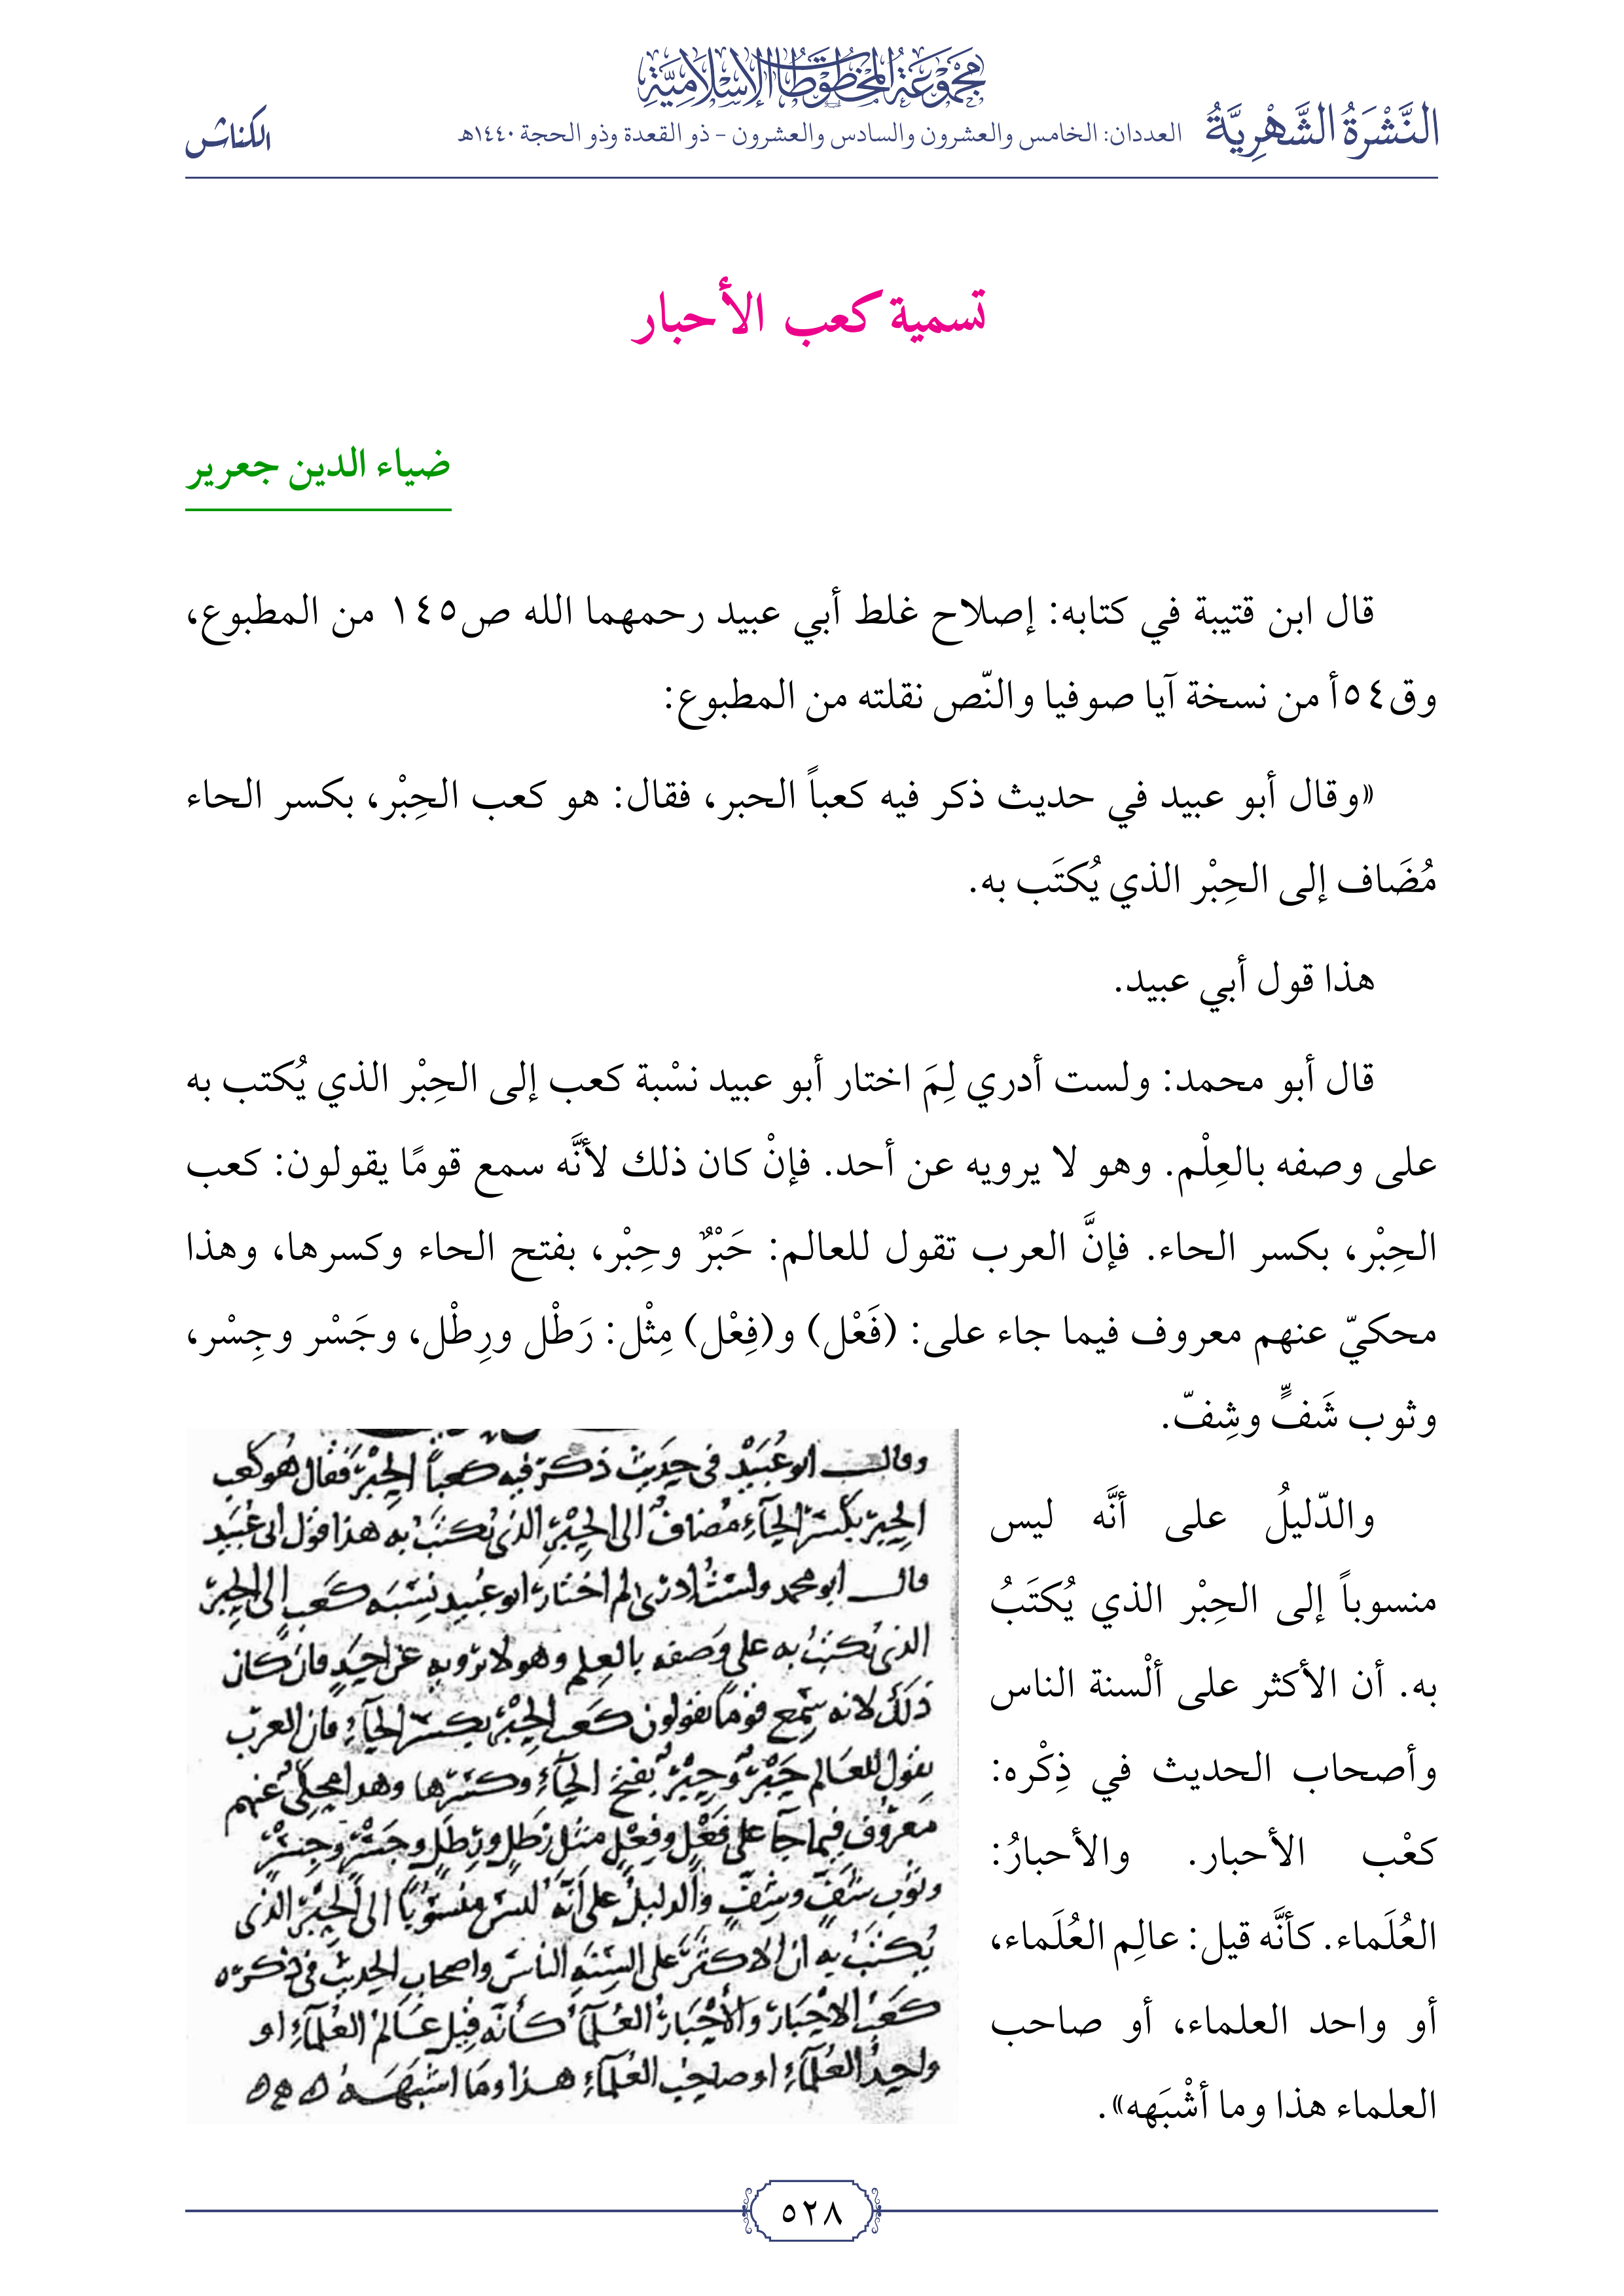 مَجْمُوعَةُ المَخْطُوطَاتِ الإِسْلَامِيَّةِ
النَّشْرَةُ الشَّهْرِيَّةُ العددان: الخامس والعشرون والسادس والعشرون - ذو القعدة وذو الحجة ١٤٤٠هـ الكناش
تسمية كعب الأحبار
ضياء الدين جعرير
قال ابن قتيبة في كتابه: إصلاح غلط أبي عبيد رحمهما الله ص١٤٥ من المطبوع،
وق٥٤أ من نسخة آيا صوفيا والنّص نقلته من المطبوع:
«وقال أبو عبيد في حديث ذكر فيه كعباً الحبر، فقال: هو كعب الحِبْر، بكسر الحاء
مُضَاف إلى الحِبْر الذي يُكتَب به.
هذا قول أبي عبيد.
قال أبو محمد: ولست أدري لِمَ اختار أبو عبيد نسْبة كعب إلى الحِبْر الذي يُكتب به
على وصفه بالعِلْم. وهو لا يرويه عن أحد. فإنْ كان ذلك لأنَّه سمع قومًا يقولون: كعب
الحِبْر، بكسر الحاء. فإنَّ العرب تقول للعالم: حَبْرٌ وحِبْر، بفتح الحاء وكسرها، وهذا
محكيّ عنهم معروف فيما جاء على: (فَعْل) و(فِعْل) مِثْل: رَطْل ورِطْل، وجَسْر وجِسْر،
وثوب شَفٍّ وشِفّ.
والدّليلُ على أنَّه ليس
منسوباً إلى الحِبْر الذي يُكتَبُ
به. أن الأكثر على ألْسنة الناس
وأصحاب الحديث في ذِكْره:
كعْب الأحبار. والأحبارُ:
العُلَماء. كأنَّه قيل: عالِم العُلَماء،
أو واحد العلماء، أو صاحب
العلماء هذا وما أشْبَهه».
وقال ابو عُبَيْدٍ في حديث ذكر فيه كعباً الحِبْرَ فقال هو كعب
الحِبْر بكسر الحاءِ مُضافٌ الى الحِبْرِ الذي يُكتَبُ به هذا قول ابي عُبَيد
قال ابو محمد ولستُ ادري لم اختار ابو عُبيد نِسْبَه كعب الى الحِبْر
الذي يُكتبُ به على وَصفه بالعِلم وهو لا يرويه عن احَدٍ فان كان
ذلك لانه سمع قومًا يقولون كعب الحِبْر بكسر الحاءِ فان العرب
يقول للعَالم حَبْرٌ وحِبْرٌ بفتح الحاءِ وكسرها وهذا محكيٌ عنهم
معروف فيما جآ على فَعْلٍ وفِعْلٍ مثل رَطلٍ ورِطلٍ وجَسْر وجِسْر
وثوب شَفٍّ وشِفٍّ والدليل على أنّه ليس منسوبًا الى الحِبْر الذي
يُكتبُ به ان الاكثر على السِنَةِ الناس واصحاب الحديث في ذكره
كعبُ الاحْبَار والأحْبَارُ العُلمآء كأنّه قيل عَالمُ العُلمآءِ او
واحِدُ العُلمآءِ او صاحبُ العُلمآءِ هذا وما اشبَهَهُ
٥٢٨